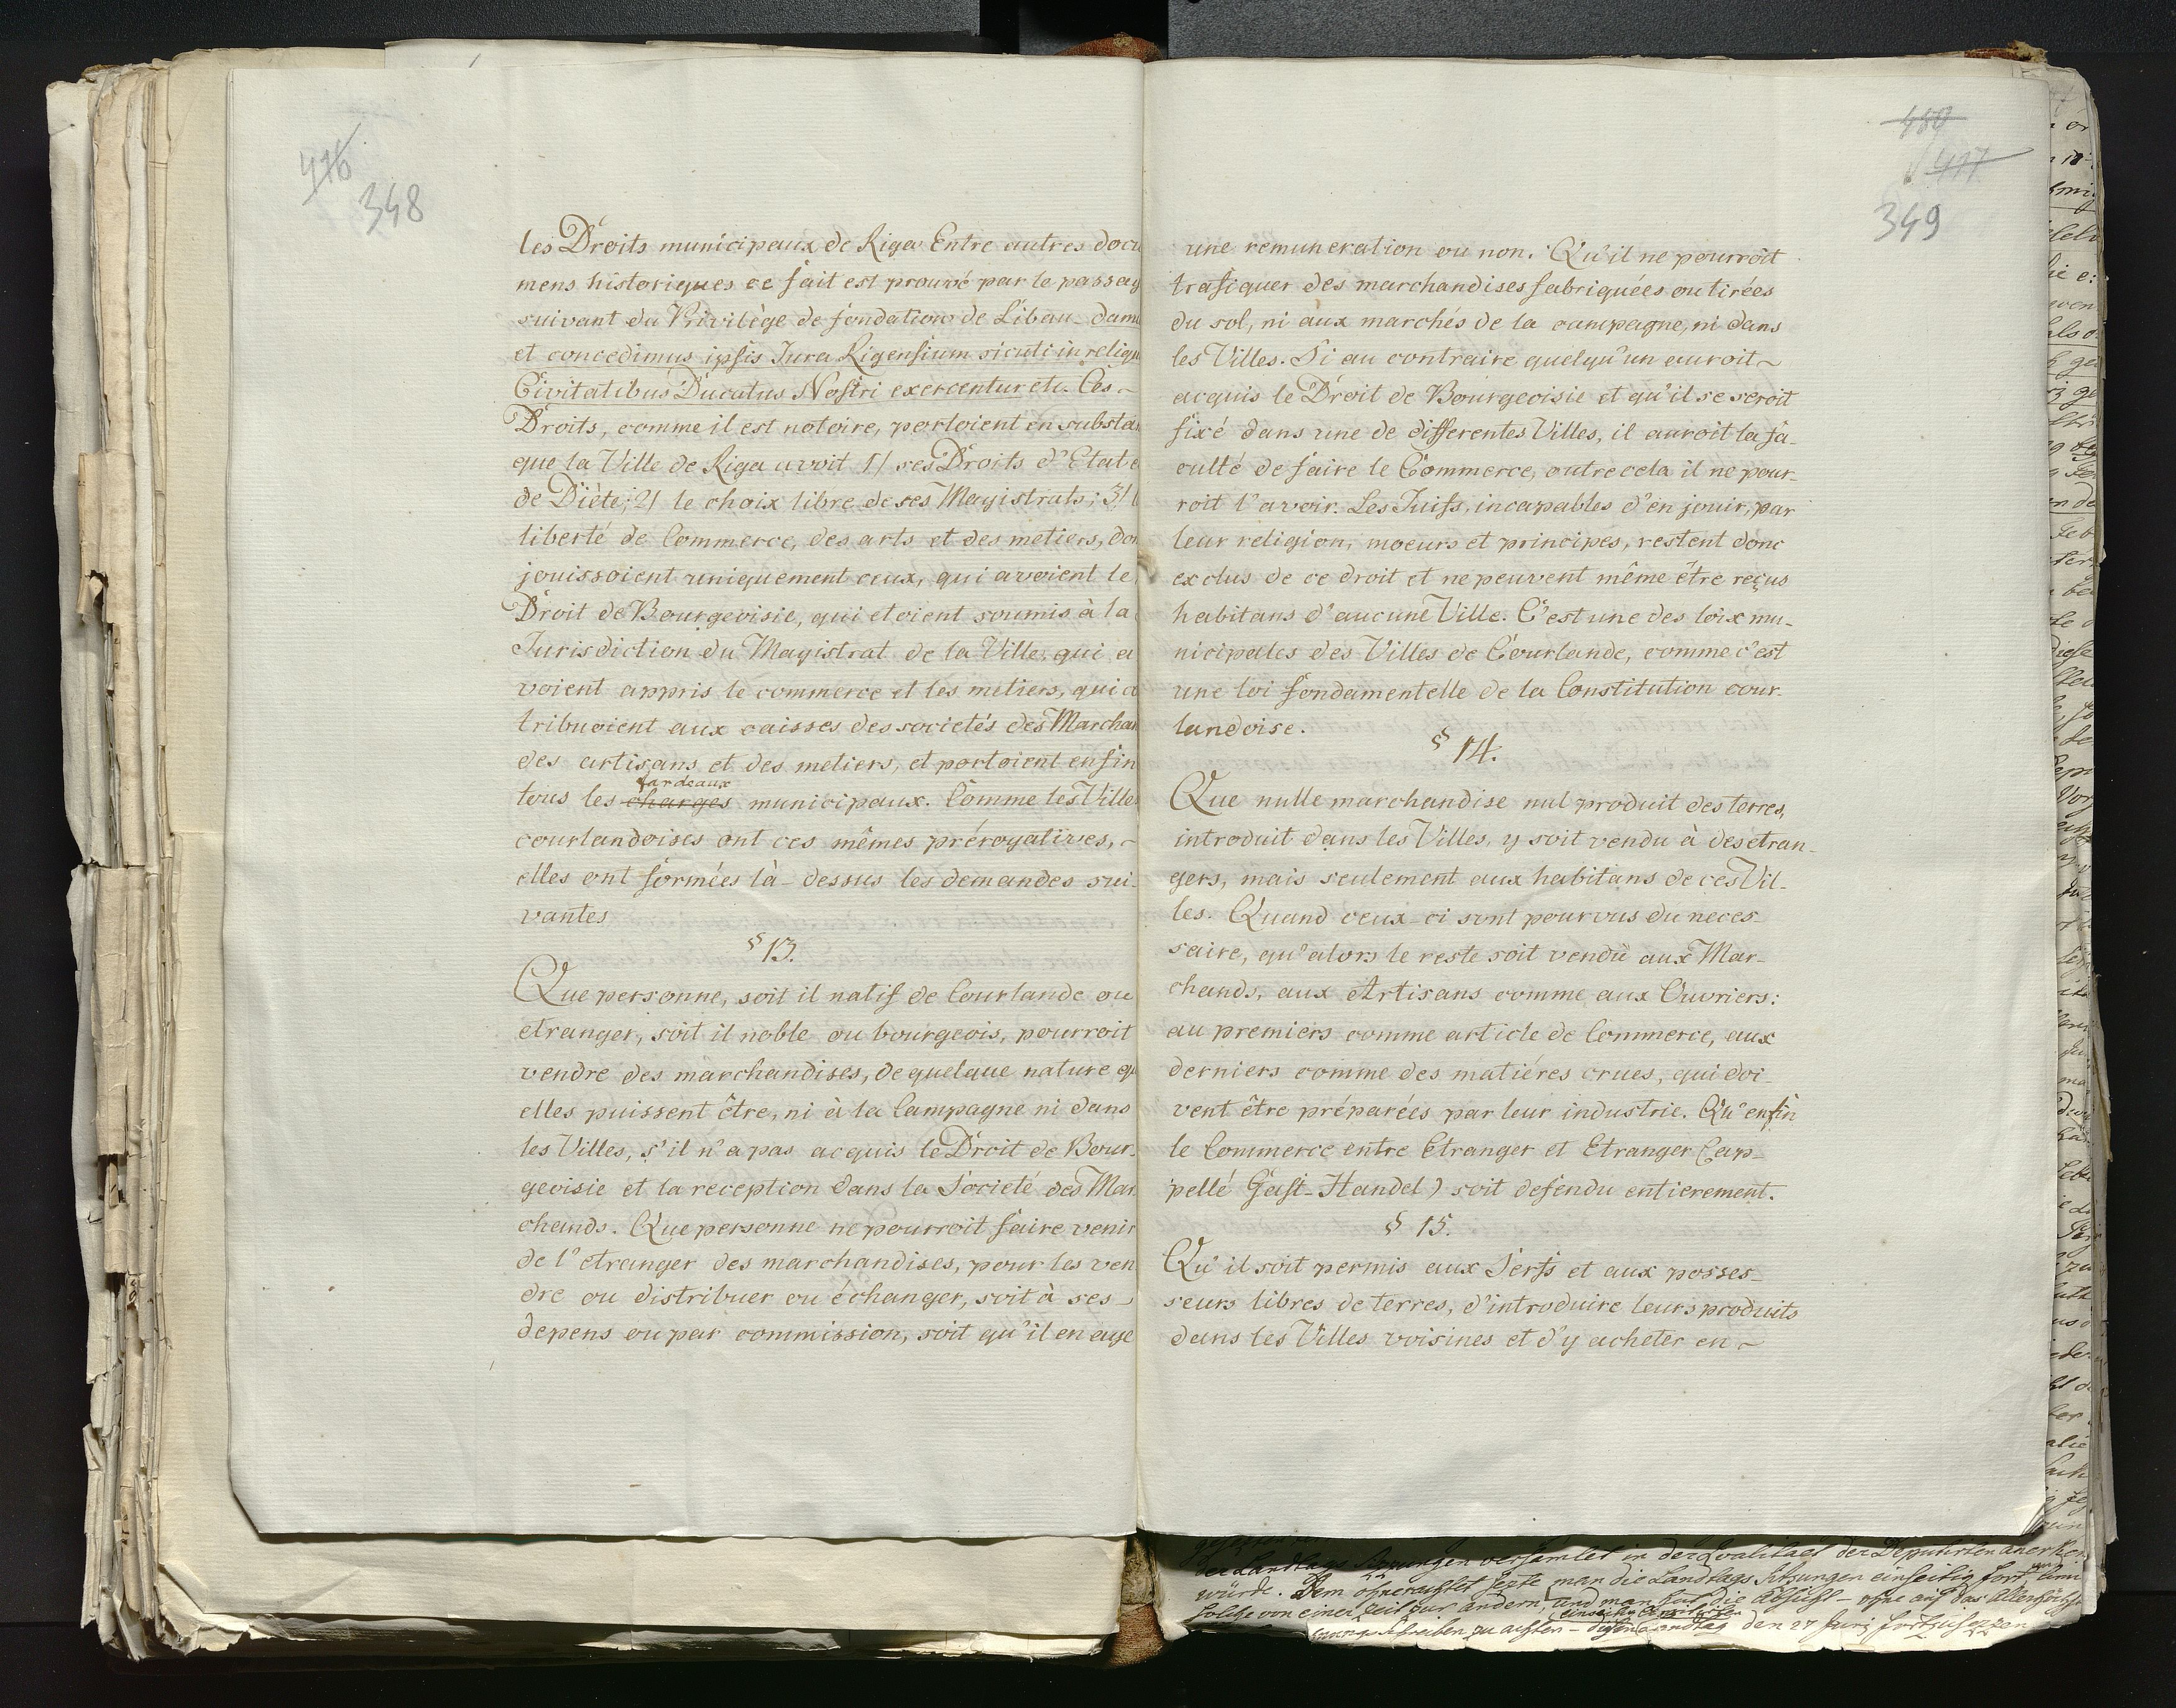 416
348
les Droits municipaux de Riga Entre autres docu
mens historiques ce fait est prouvé par le passag
suivant du Privilège de fondation de Libau_ dam
et concedimus ipsis Jura Rigensium sicuti in reliqu
Civitatibus Ducatus Nostri exercentur etc. Ces ~
Droits, comme il est notoire, portoient en substan
que la Ville de Riga avoit 1/ ses Droits d'Etat e
de Diète; 2/ le choix libre de ses Magistrats; 3/ l
liberté de Commerce, des arts et des metiers, don
jouissoient uniquement ceux, qui avoient le
Droit de Bourgeoisie, qui etoient soumis à la
Jurisdiction du Magistrat de la Ville, qui a
voient appris le commerce et les metiers, qui co
tribuoient aux caisses des societés des Marchan
des artisans et des metiers, et portoient enfin
fardeaux
tous les charges municipaux. Comme les Ville
courlandoises ont ces mêmes prérogatives, ~
elles ont formées là-dessus les demandes sui-
vantes
§ 13.
Que personne, soit il natif de Courlande ou
etranger, soit il noble ou bourgeois, pourroit
vendre des marchandises, de quelque nature qu
elles puissent être, ni à la Campagne ni dans
les Villes, s'il n'a pas acquis le Droit de Bour-
geoisie et la reception dans la Societé des Mar
chands. Que personne ne pourroit faire venir
de l'etranger des marchandises, pour les ven
dre ou distribuer ou échanger, soit à ses ~
depens ou par commission, soit qu'il en aye
480
417
349
une remuneration ou non. Qu'il ne pourroit
trafiquer des marchandises fabriquées ou tirées
du sol, ni aux marchés de la campagne, ni dans
les Villes. Si au contraire quelqu'un auroit ~
acquis le Droit de Bourgeoisie et qu'il se seroit
fixé dans une de differentes Villes, il auroit la fa-
culté de faire le Commerce, outre cela il ne pour-
roit l'avoir. Les Juifs, incapables d'en jouir, par
leur religion, moeurs et principes, restent donc
exclus de ce droit et ne peuvent même être reçus
habitans d'aucune Ville. C'est une des loix mu-
nicipales des Villes de Courlande, comme c'est
une loi fondamentelle de la Constitution cour-
landoise.
§ 14.
Que nulle marchandise nul produit des terres,
introduit dans les Villes, y soit vendu à des etran-
gers, mais seulement aux habitans de ces Vil-
les. Quand ceux-ci sont pourvus du neces-
saire, qu'alors le reste soit vendu aux Mar-
chands, aux Artisans comme aux Ouvriers:
au premiers comme article de Commerce, aux
derniers comme des matiéres crues, qui doi-
vent être préparées par leur industrie. Qu'enfin
le Commerce entre Etranger et Etranger (ap-
pellé Gast-Handel) soit defendu entierement.
§ 15.
Qu'il soit permis aux Serfs et aux posses-
seurs libres de terres, d'introduire leurs produits
dans les Villes voisines et d'y acheter en ~
der Landtags Sitzungen versamlet in der Qualitaet der Deputirten anerken
würde. Dem ohnerachtet sezte man die Landtags Sitzungen einseitig fort
solche von einer Zeit zur andern, und man hat die Absicht – ohne auf das Allerhöchste
zu achten – diesen Landtag den 27 Juni fortzusezzen